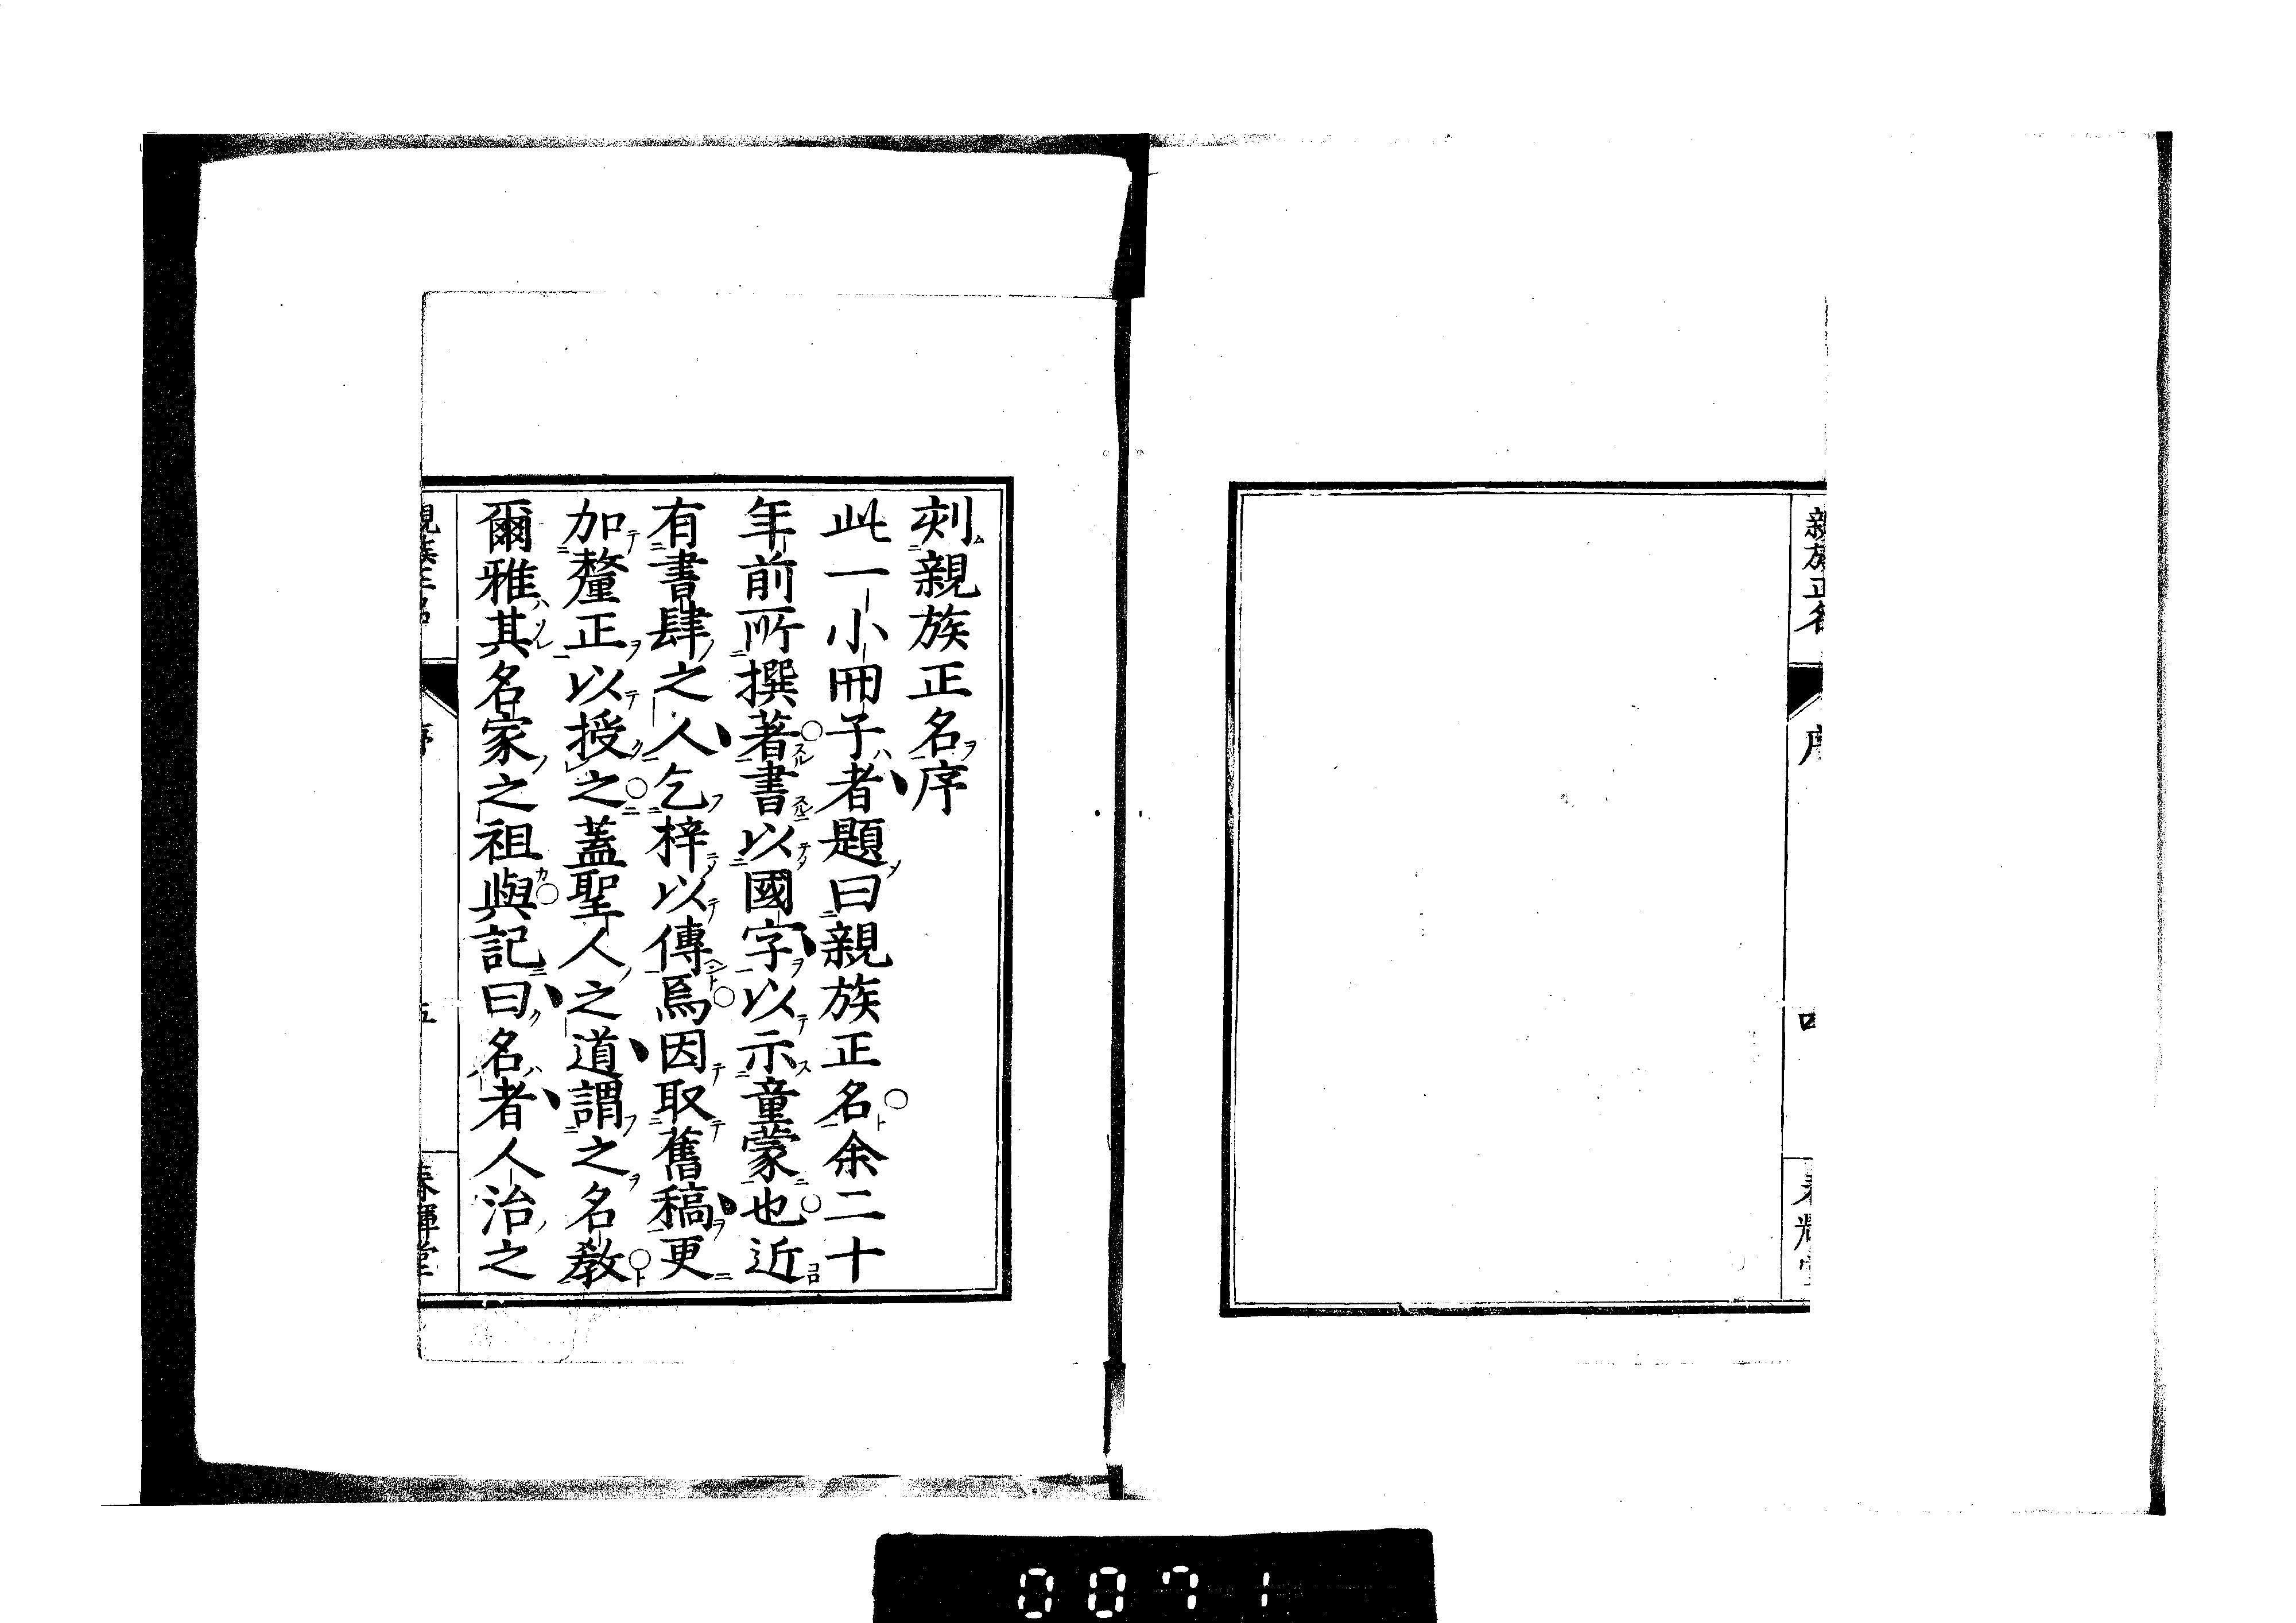 親族正名
序
四
刻親族正名序
此一小冊子者題曰親族正名余二十
年前所撰著書以國字以示童蒙也近
有書肆之人乞梓以傳焉因取舊稿更
加釐正以授之蓋聖人之道謂之名教
爾雅其名家之祖與記曰名者人治之
親族正名
序
五
春暉堂
0071